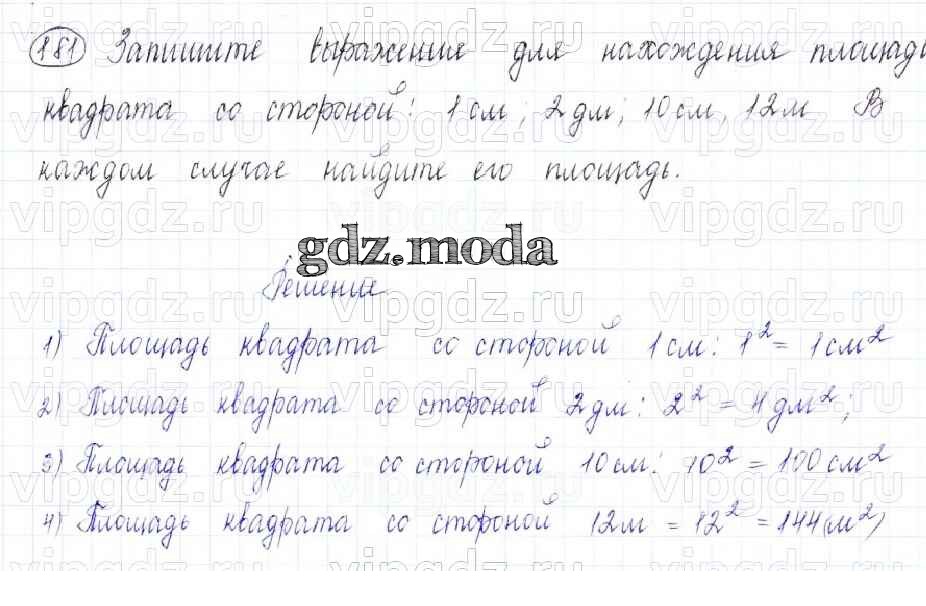 181 Запишите выражения для нахождения площади
квадрата со стороной: 1 см; 2 дм; 10 см, 12 м В
каждом случае найдите его площадь.
gdz.moda
Решение
1) Площадь квадрата со стороной 1 см: 1² = 1 см²
2) Площадь квадрата со стороной 2 дм: 2² = 4 дм²;
3) Площадь квадрата со стороной 10 см: 10² = 100 см²
4) Площадь квадрата со стороной 12 м = 12² = 144 (м²)
vipgdz.ru